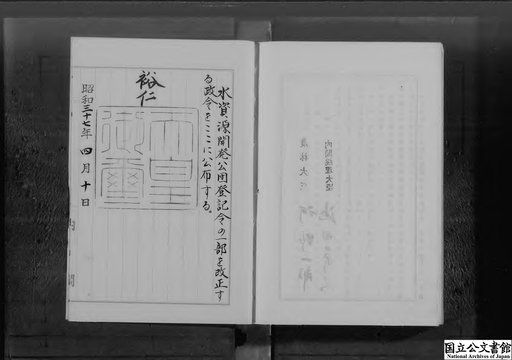 水資源開発公団登記令の一部を改正す
る政令をここに公布する。
裕仁
天皇
御璽
昭和三十七年四月十日
内閣総理大臣
国立公文書館
National Archives of Japan